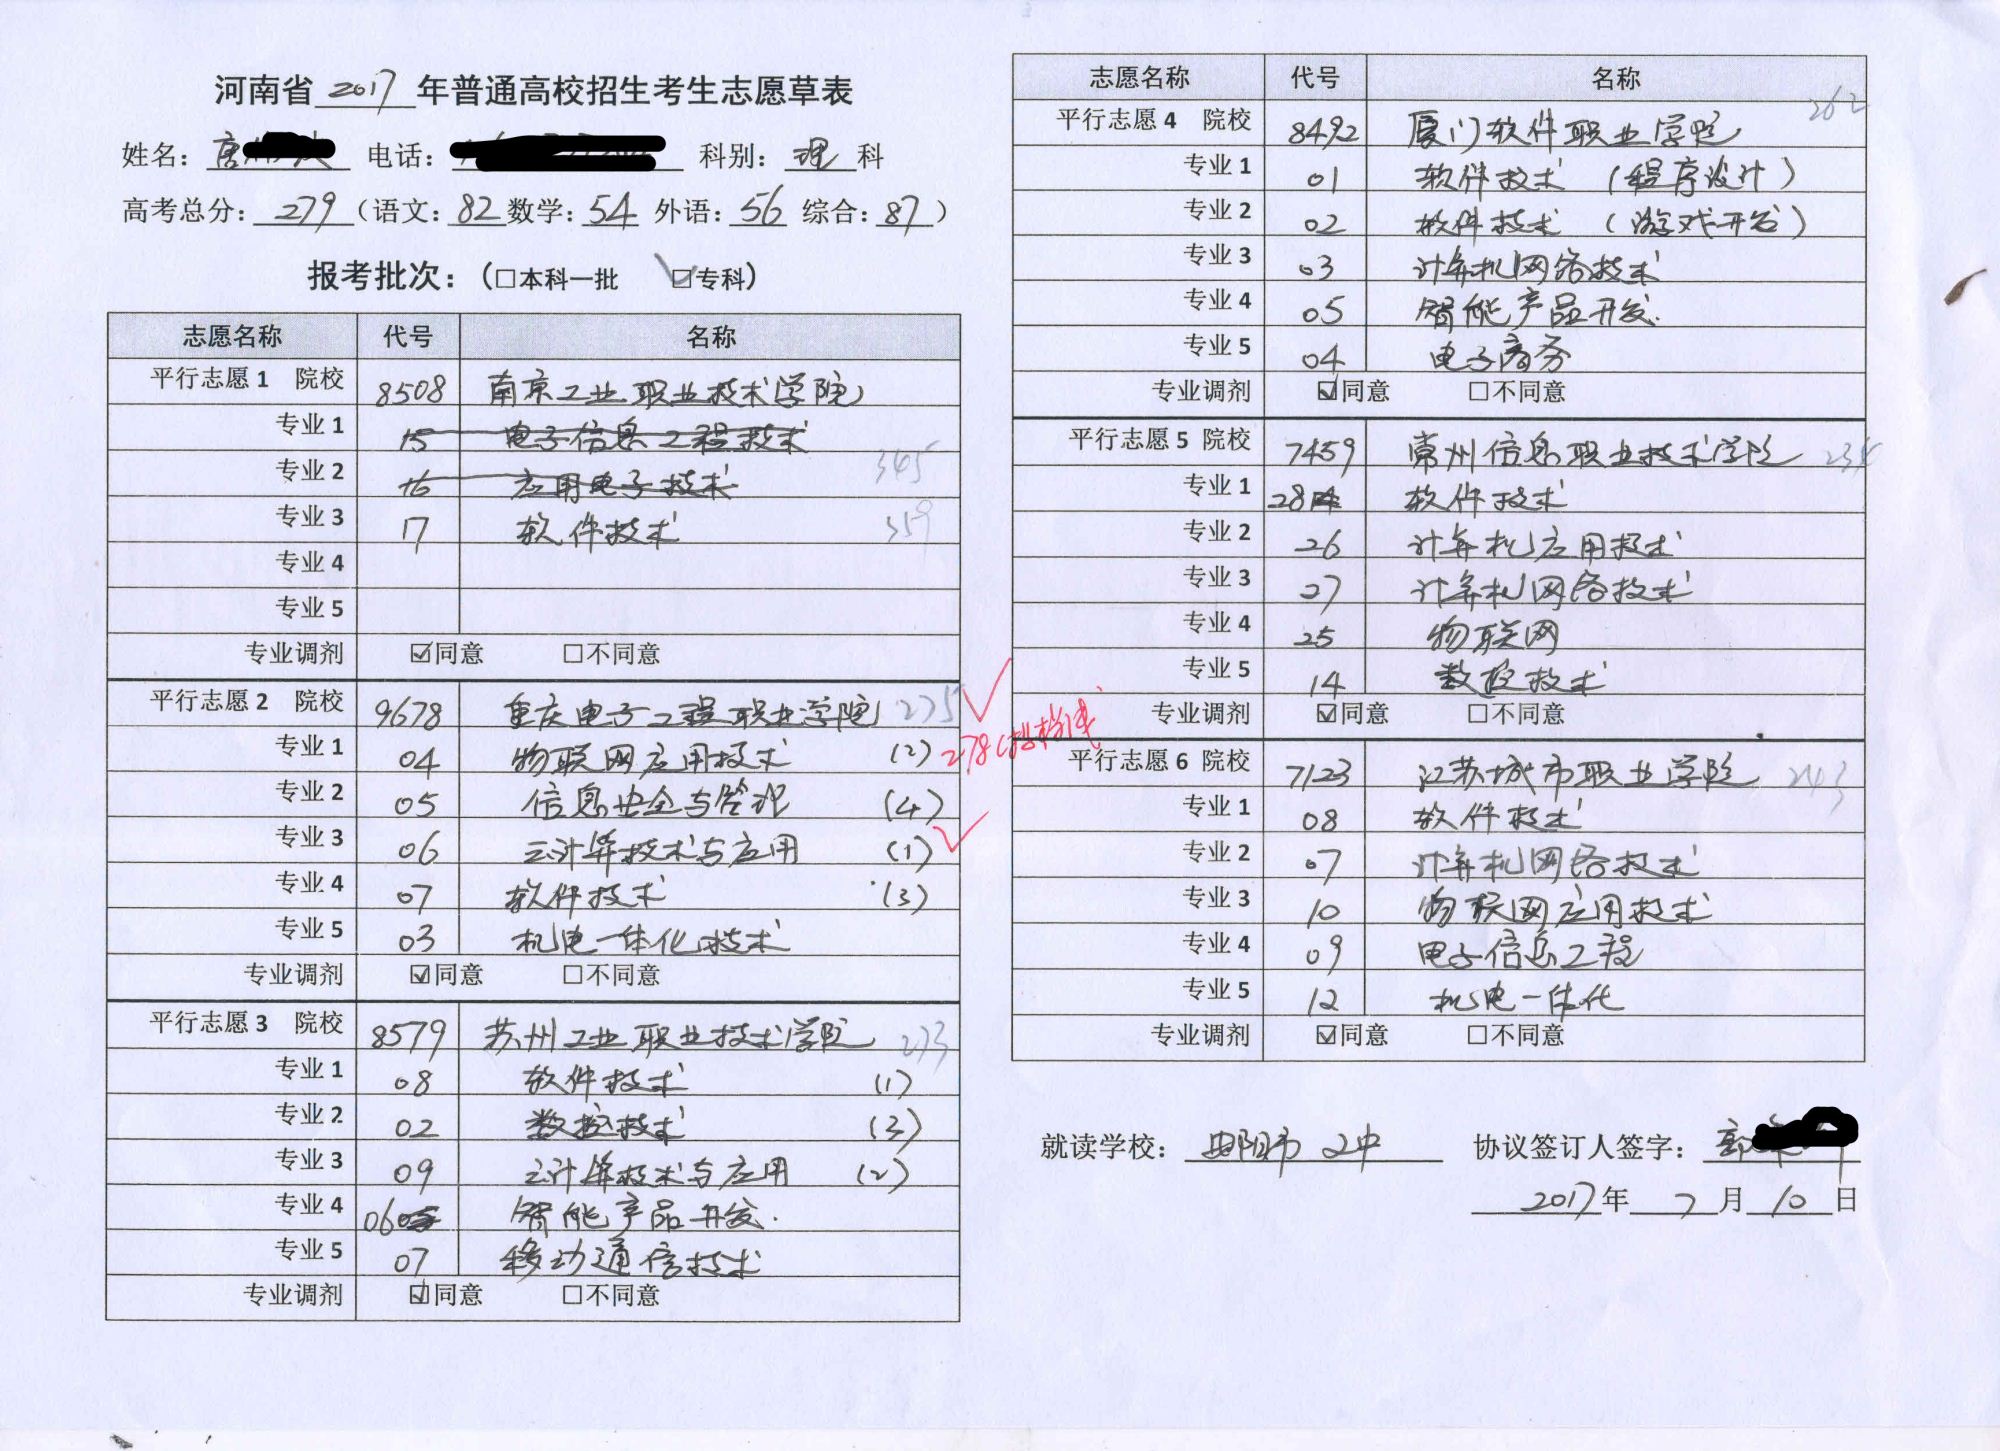 河南省 2017 年普通高校招生考生志愿草表
姓名: 唐 电话: 科别: 理 科
高考总分: 279 (语文: 82 数学: 54 外语: 56 综合: 87 )
报考批次: (□本科一批 ☑专科)
志愿名称 代号 名称
平行志愿 1 院校 8508 南京工业职业技术学院
专业 1 15 电子信息工程技术
专业 2 16 应用电子技术 345
专业 3 17 软件技术 359
专业 4
专业 5
专业调剂 ☑同意 □不同意
平行志愿 2 院校 9678 重庆电子工程职业学院 275 ✓
278(投档线)
专业 1 04 物联网应用技术 (2)
专业 2 05 信息安全与管理 (4)
专业 3 06 云计算技术与应用 (1) ✓
专业 4 07 软件技术 (3)
专业 5 03 机电一体化技术
专业调剂 ☑同意 □不同意
平行志愿 3 院校 8579 苏州工业职业技术学院 273
专业 1 08 软件技术 (1)
专业 2 02 数控技术 (3)
专业 3 09 云计算技术与应用 (2)
专业 4 06 智能产品开发.
专业 5 07 移动通信技术
专业调剂 ☑同意 □不同意
志愿名称 代号 名称
平行志愿 4 院校 8492 厦门软件职业学院 262
专业 1 01 软件技术 (程序设计)
专业 2 02 软件技术 (游戏开发)
专业 3 03 计算机网络技术
专业 4 05 智能产品开发.
专业 5 04 电子商务
专业调剂 ☑同意 □不同意
平行志愿 5 院校 7459 常州信息职业技术学院
专业 1 28 软件技术
专业 2 26 计算机应用技术
专业 3 27 计算机网络技术
专业 4 25 物联网
专业 5 14 数控技术
专业调剂 ☑同意 □不同意
平行志愿 6 院校 7123 江苏城市职业学院 243
专业 1 08 软件技术
专业 2 07 计算机网络技术
专业 3 10 物联网应用技术
专业 4 09 电子信息工程
专业 5 12 机电一体化
专业调剂 ☑同意 □不同意
就读学校: 市 2中 协议签订人签字: 郭
2017 年 7 月 10 日